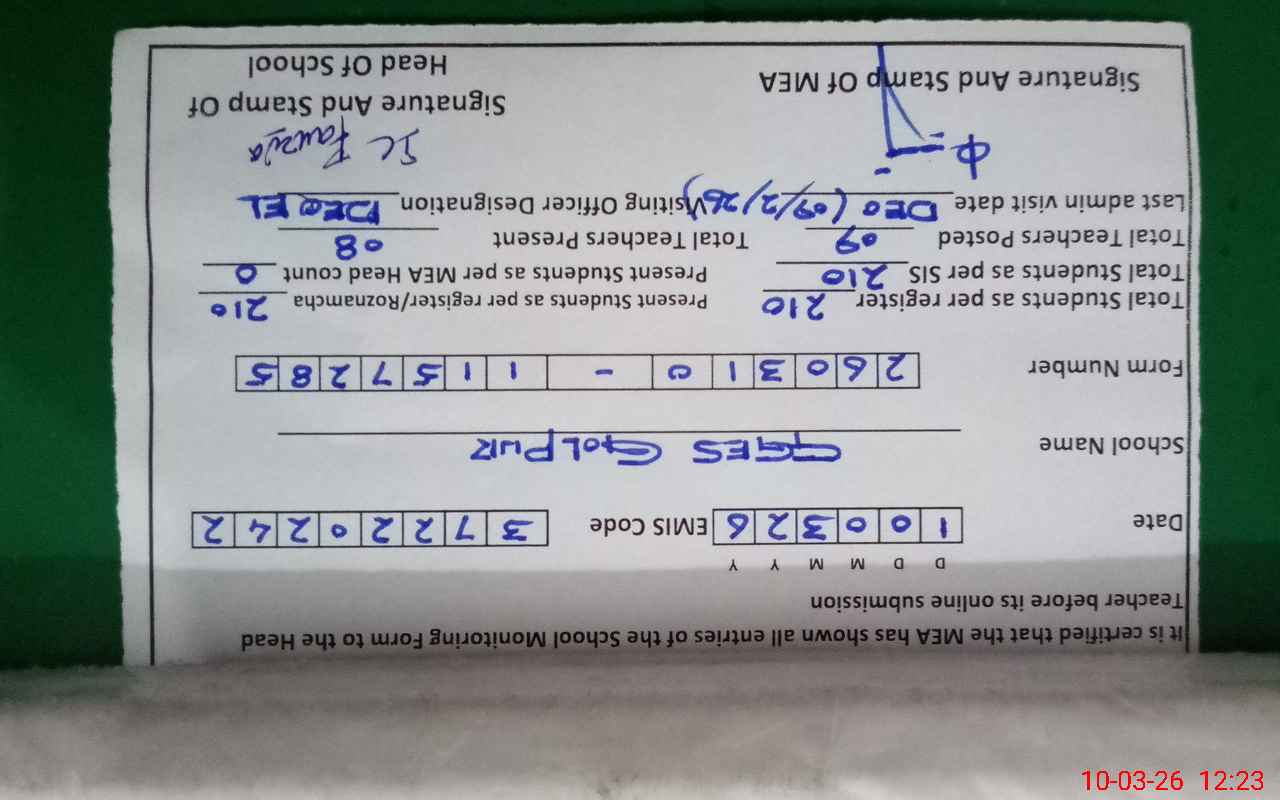 It is certified that the MEA has shown all entries of the School Monitoring Form to the Head
Teacher before its online submission
D D M M Y Y
Date 1 0 0 3 2 6 EMIS Code 3 7 2 2 0 2 4 2
School Name GGES GOLPUR
Form Number 2 6 0 3 1 0 - 1 1 5 7 2 8 5
Total Students as per register 210 Present Students as per register/Roznamcha 210
Total Students as per SIS 210 Present Students as per MEA Head count 0
Total Teachers Posted 09 Total Teachers Present 08
Last admin visit date DEO (09/2/26) Visiting Officer Designation DEO EL
SC Fauzia
Signature And Stamp Of MEA Signature And Stamp Of
Head Of School
10-03-26 12:23